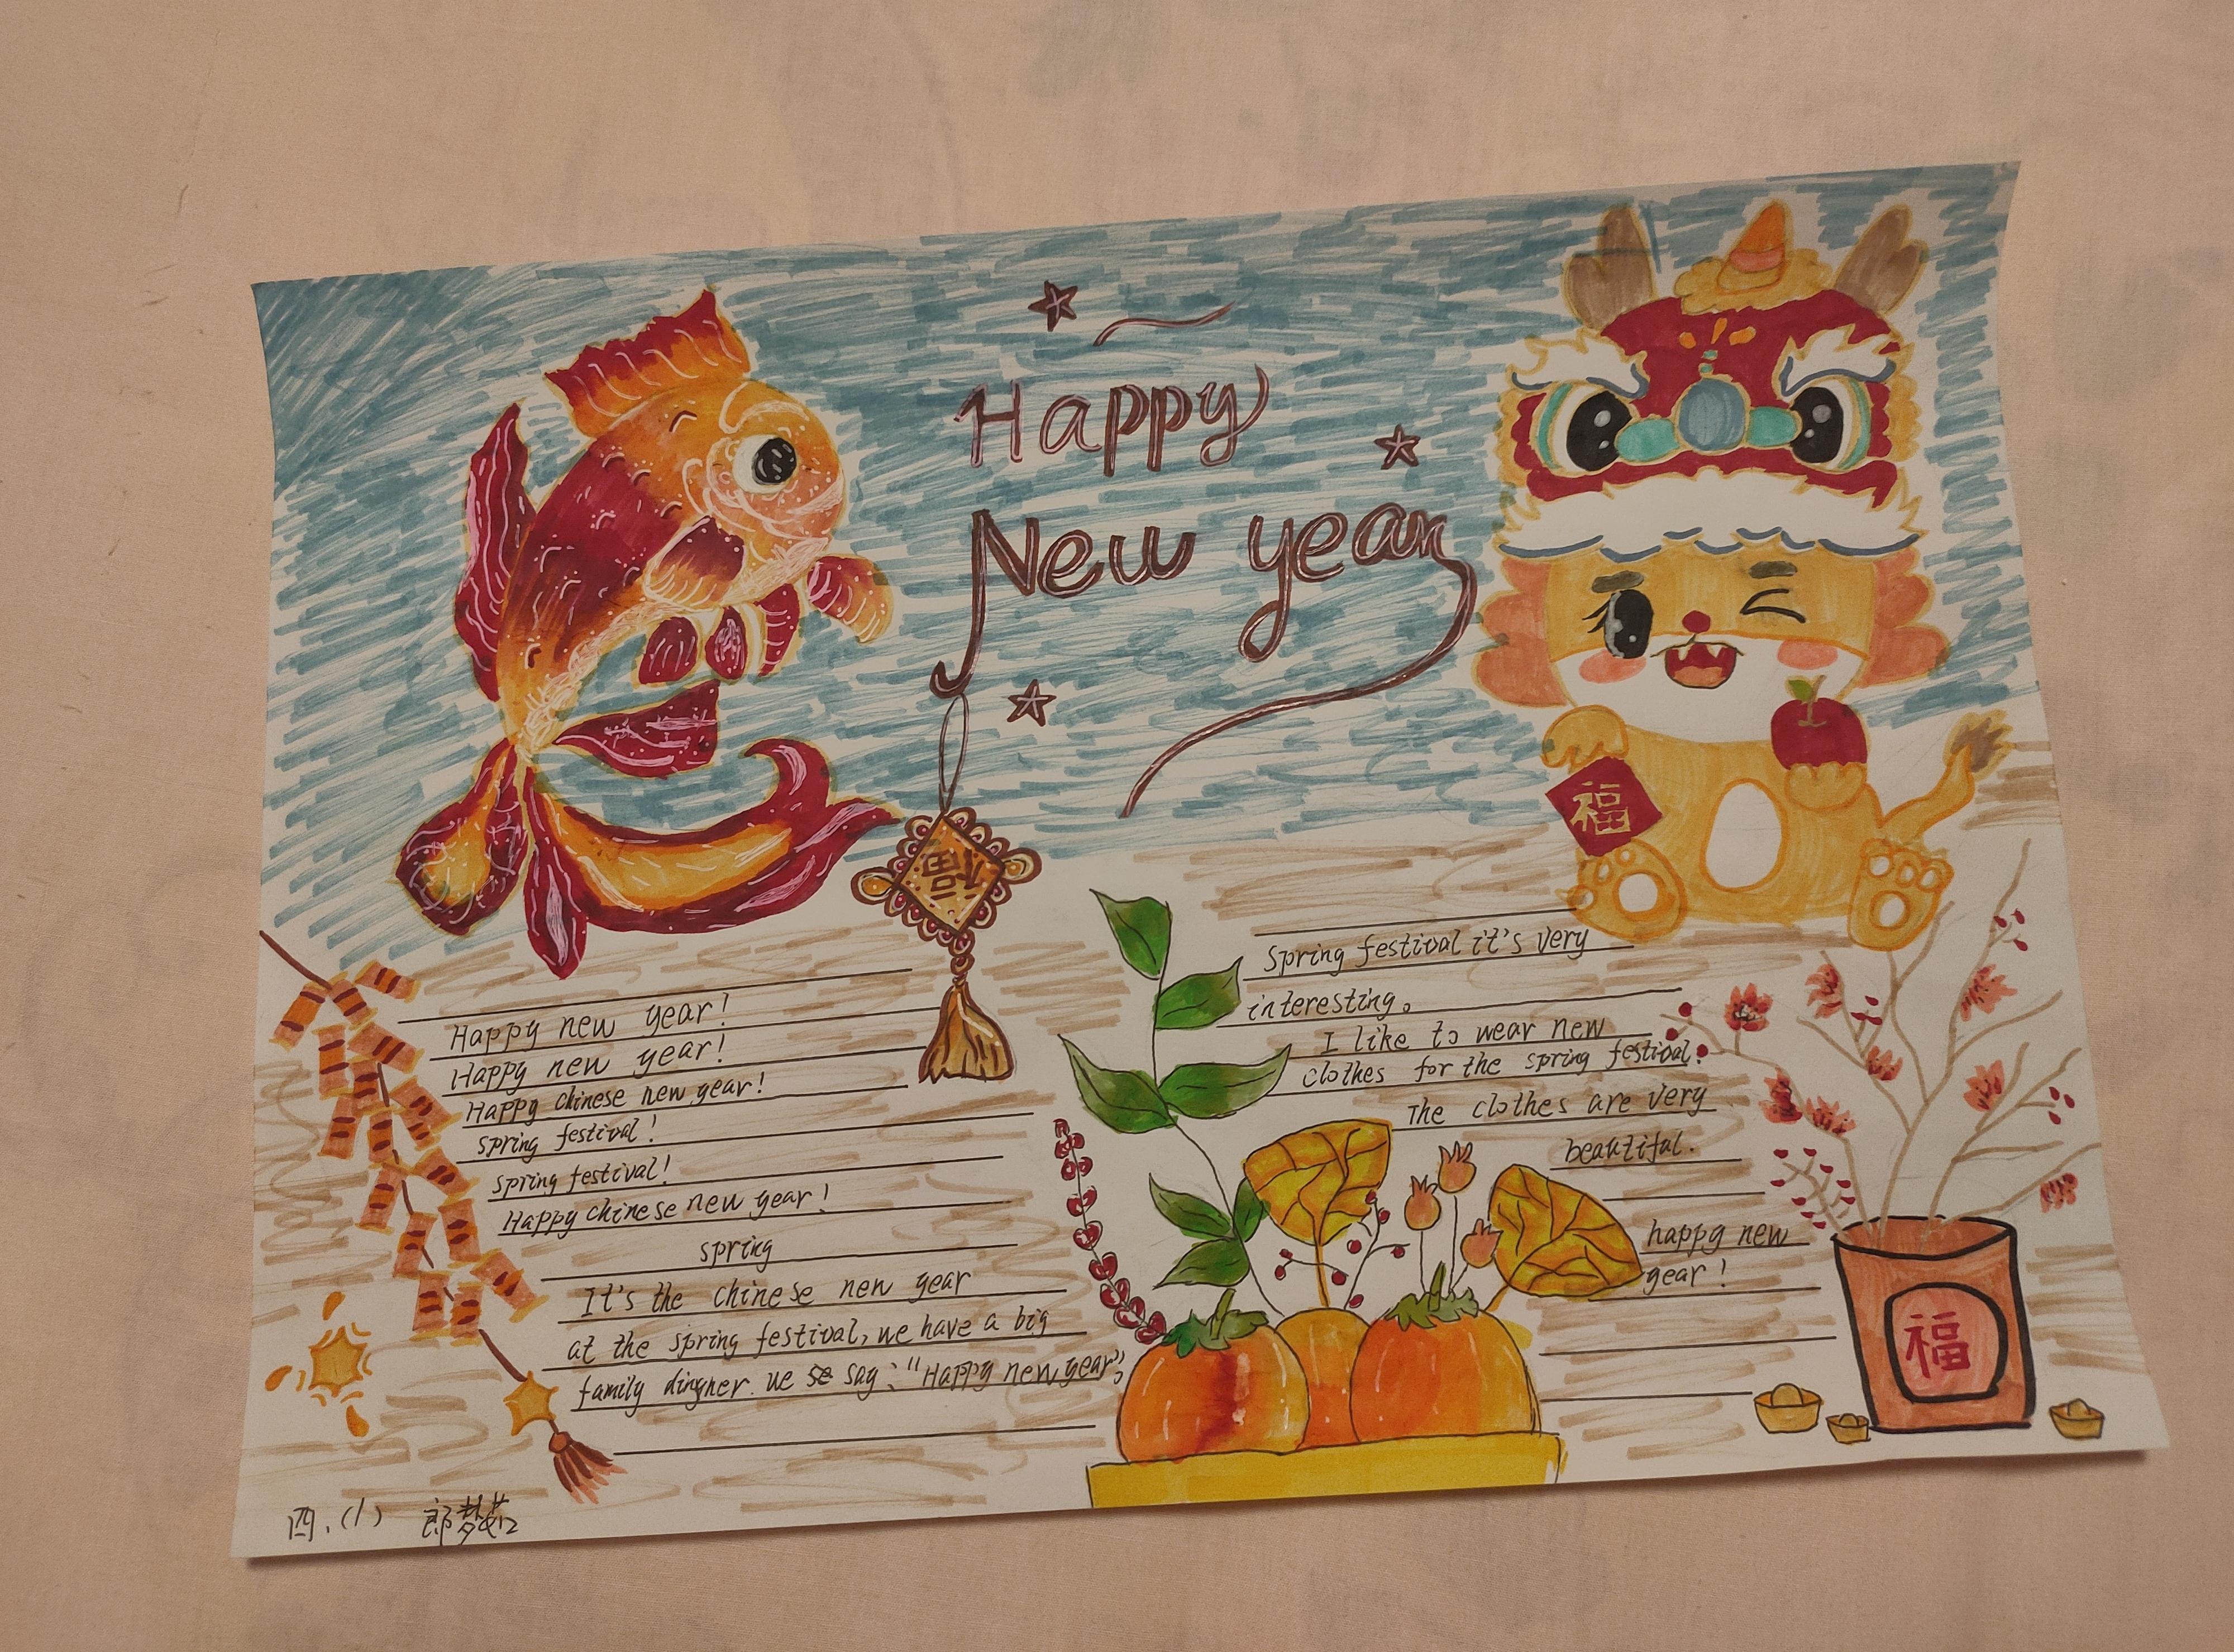 Happy
New year
福
福
Happy new year!
Happy new year!
Happy chinese new year!
spring festival!
spring festival!
Happy chinese new year!
spring
It's the chinese new year
at the spring festival, we have a big
family dingner. we se say: "Happy new year"
Spring festival it's very
interesting。
I like to wear new
clothes for the spring festival.
The clothes are very
beautiful.
happy new
year!
福
四.(1) 郎梦茹